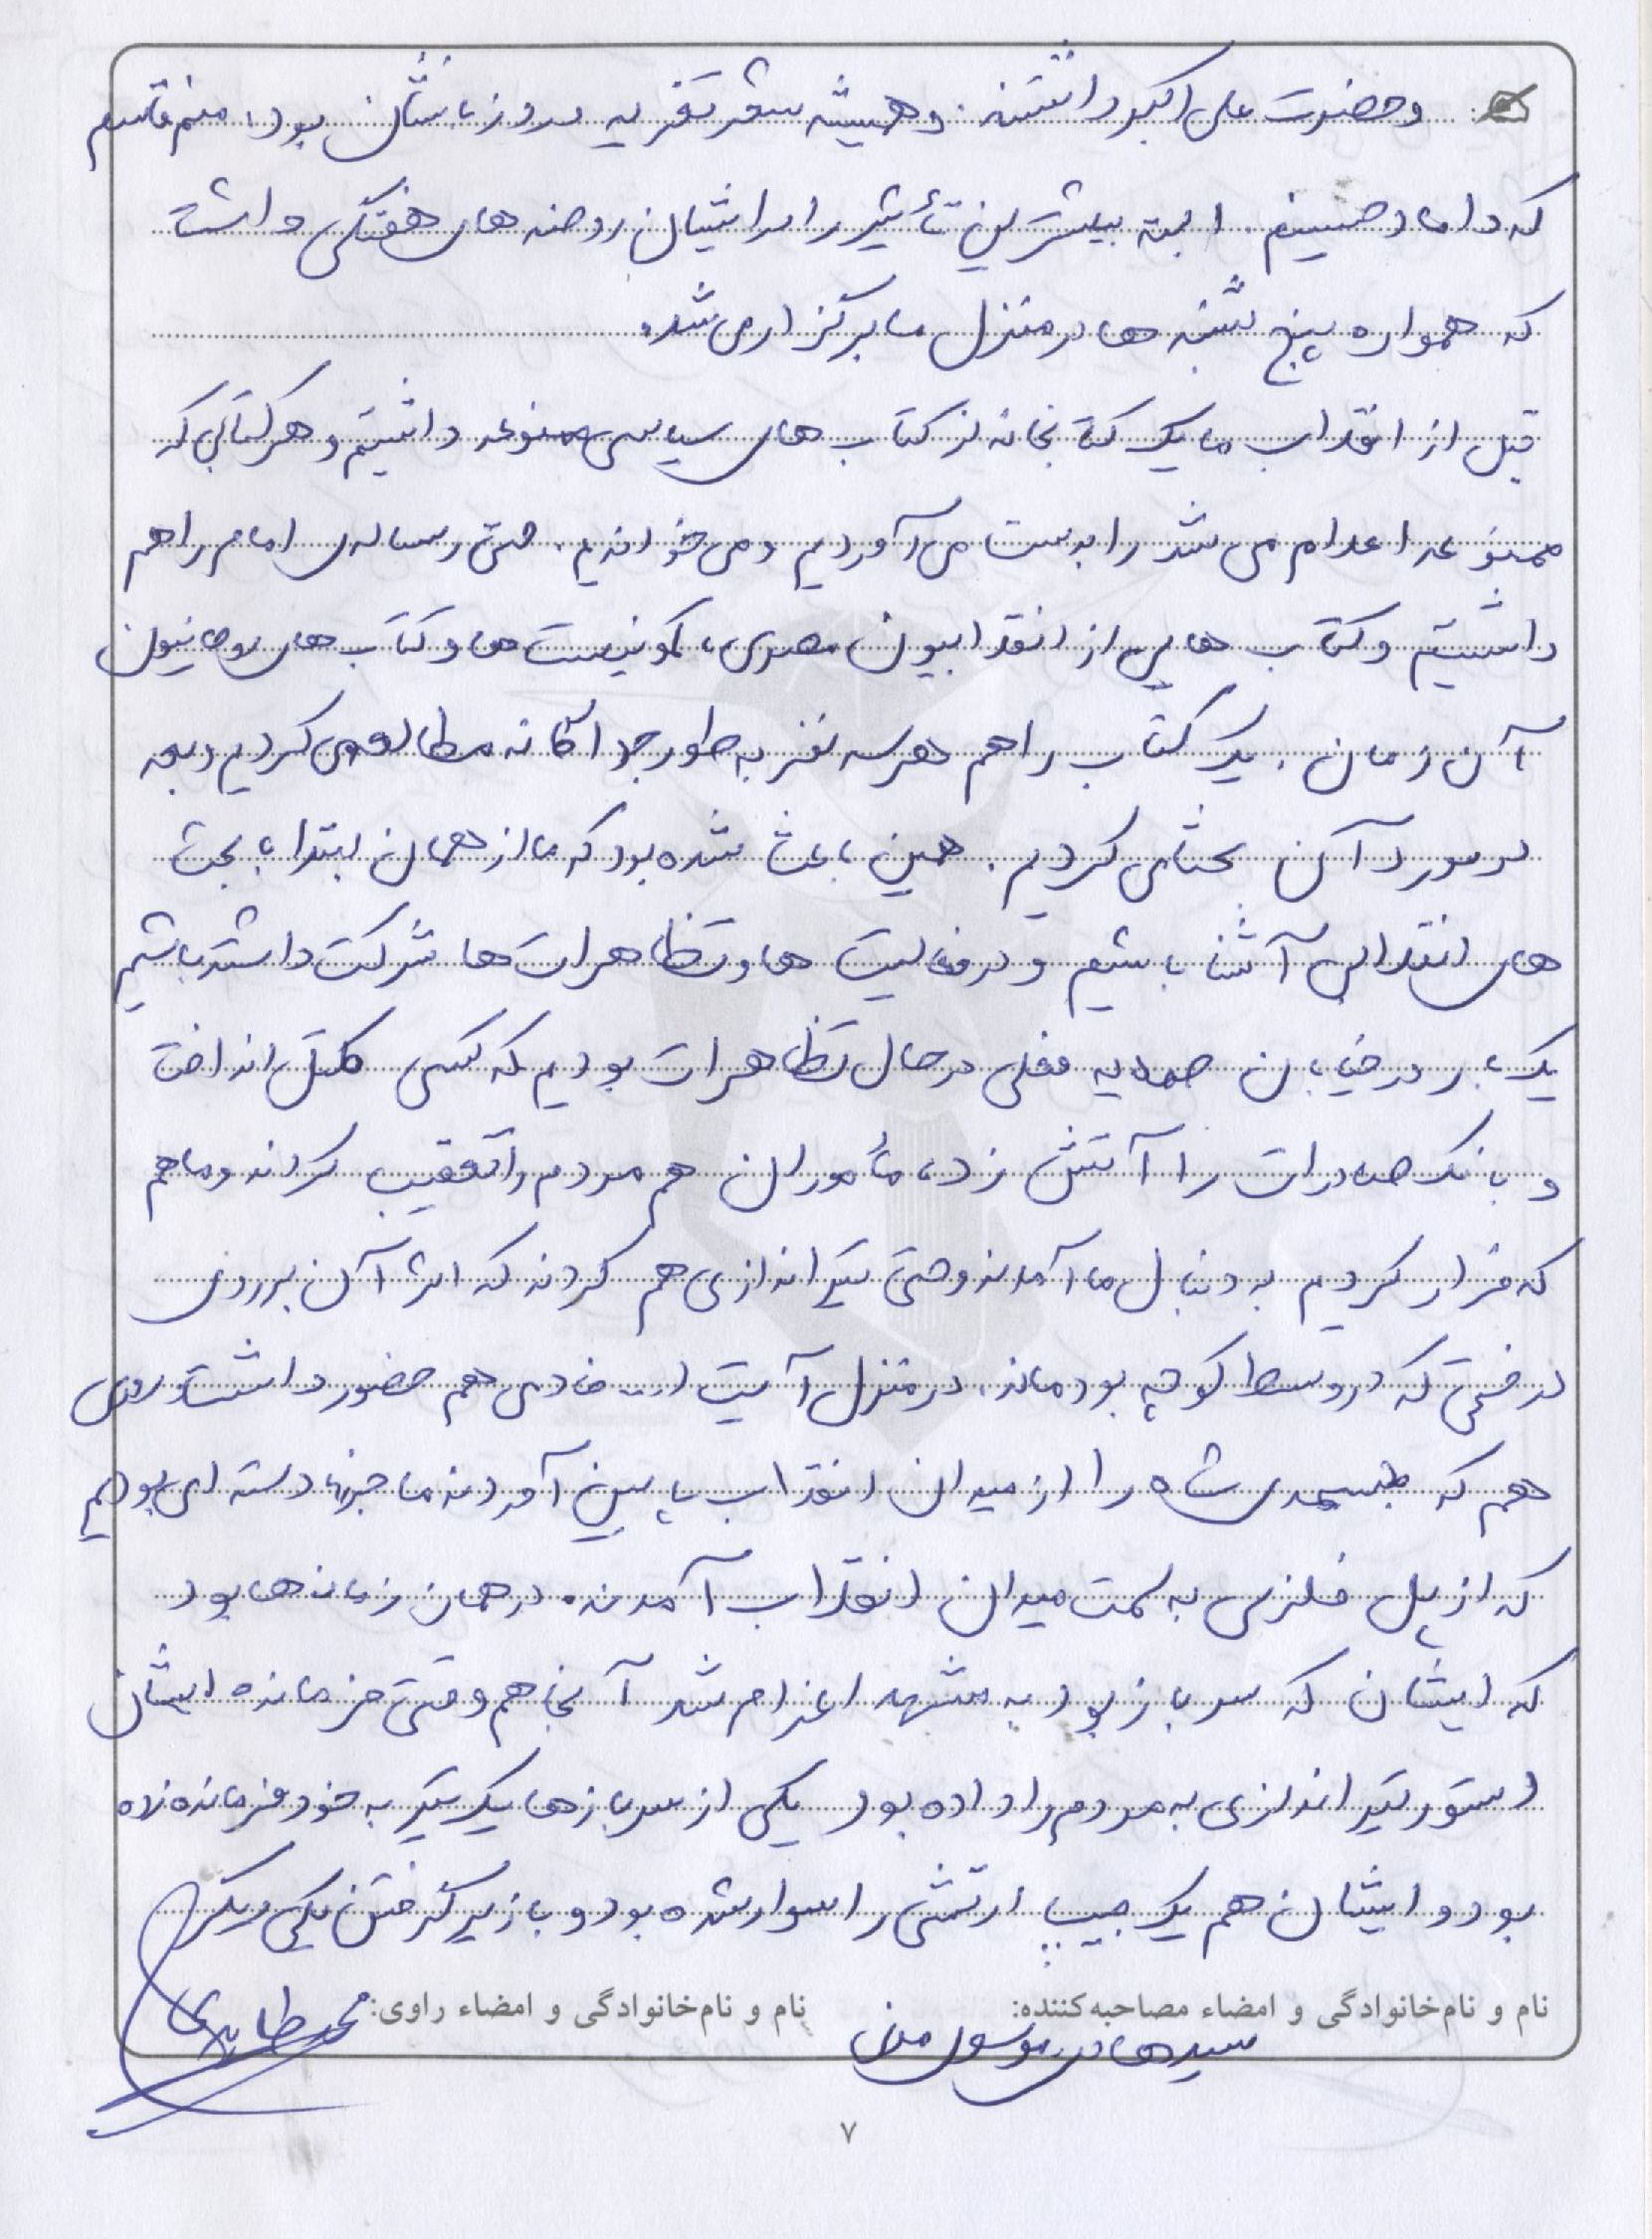 و حضرت علی اکبر داشتند. و همیشه شعر تعزیه ورد زبانشان بود، منم قاسم
که داماد حسینم. البته بیشترین تأثیر را بر ایشان روضه های هفتگی داشت
که همواره پنج شنبه ها در منزل ما برگزار می شد.
قبل از انقلاب ما یک کتابخانه از کتاب های سیاسی ممنوعه داشتیم و هر کتابی که
ممنوعه اعلام می شد را بدست می آوردیم و می خواندیم. حتی رساله ی امام را هم
داشتیم و کتاب هایی از انقلابیون مصری، کمونیست ها و کتاب های روحانیون
آن زمان. یک کتاب را هم هر سه نفر به طور جداگانه مطالعه می کردیم و بعد
در مورد آن بحث می کردیم. همین باعث شده بود که ما از همان ابتدا با بحث
های انقلابی آشنا باشیم و در فعالیت ها و تظاهرات ها شرکت داشته باشیم
یک بار در خیابان در حال تظاهرات بودیم که کسی کتل انداخت
و بانک صادرات را آتش زد، مأموران هم مردم را تعقیب کردند و ما هم
که فرار کردیم به دنبال ما آمدند و حتی تیراندازی هم کردند که اثر آن بر روی
درختی که در وسط کوچه بود ماند. در منزل آیت ا... خادمی هم حضور داشت و روزی
هم که مجسمه ی شاه را از میدان انقلاب پایین آوردند ما جزء دسته ای بودیم
که از پل فلزی به سمت میدان انقلاب آمدند. در همان زمان ها بود
که ایشان که سرباز بود به مشهد اعزام شد آنجا هم وقتی فرمانده ایشان
دستور تیراندازی به مردم را داده بود یکی از سربازها یک تیر به خود فرمانده زده
بود و ایشان هم یک جیپ ارتشی را سوار شده بود و با زیر گرفتن یکی دیگر
نام و نام‌خانوادگی و امضاء مصاحبه‌کننده: نام و نام‌خانوادگی و امضاء راوی:
سید هادی موسوی محمد طاهری
۷